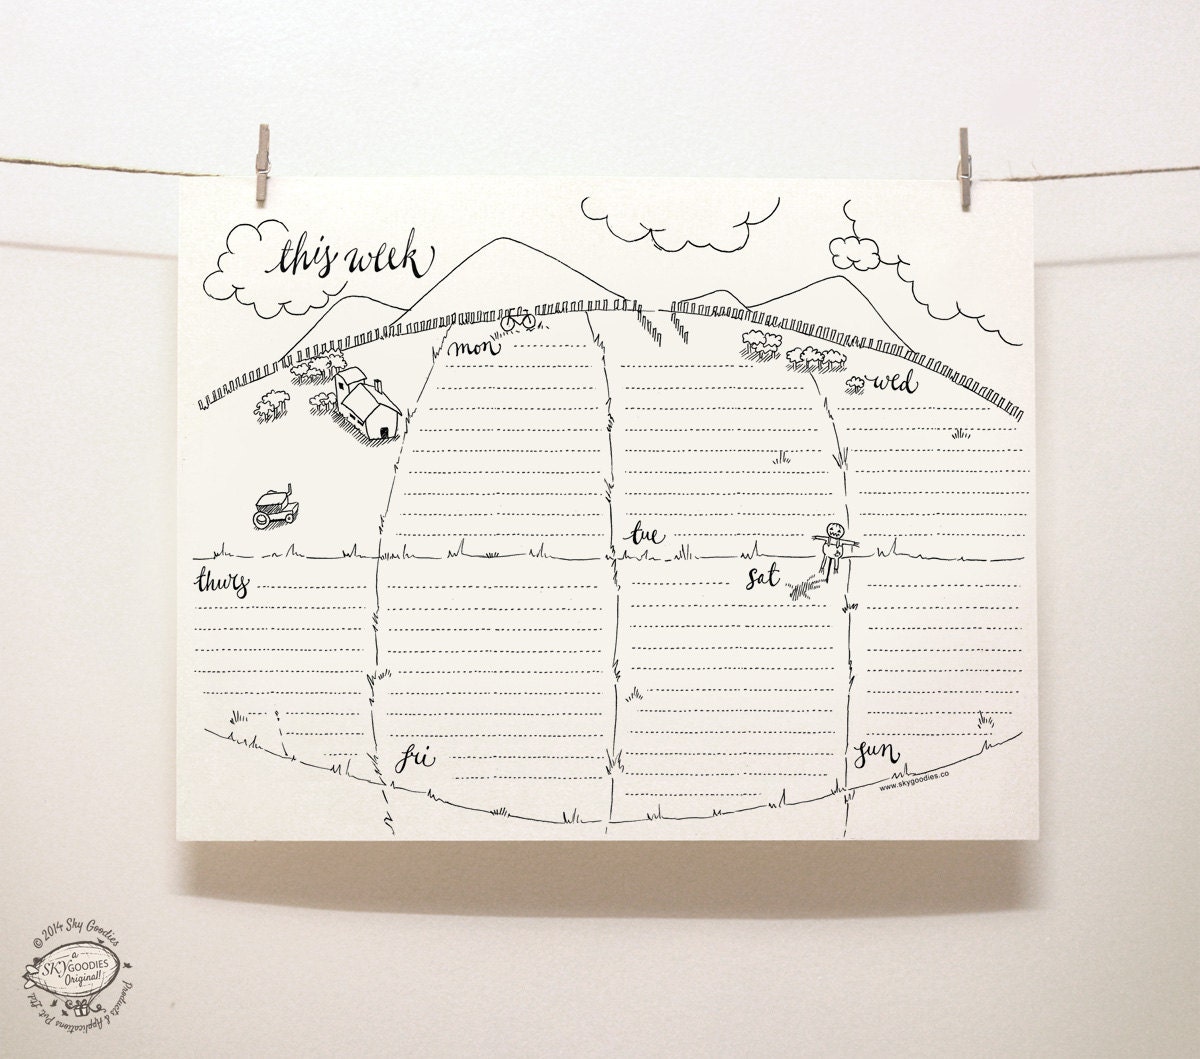 this week
mon
wed
tue
thurs
sat
fri
sun
www.skygoodies.co
© 2014 Sky Goodies
a
SKYGOODIES
Original!
Products & Applications Pvt Ltd